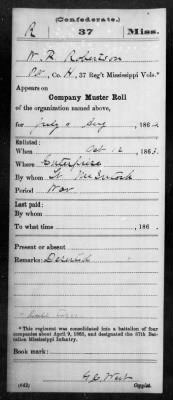 (Confederate.)
R 37 Miss.
W. R. Robertson
Co. H, 37 Reg't Mississippi Vols.*
Appears on
Company Muster Roll
of the organization named above,
for July & Aug, 186
Enlisted:
When Oct 12, 186
Where Enterprise
By whom Lt McIntosh
Period War
Last paid:
By whom
To what time , 186 .
Present or absent
Remarks: Deserted
*This regiment was consolidated into a battalion of four
companies about April 9, 1865, and designated the 37th Bat-
talion Mississippi Infantry.
Book mark:
(642) Copyist.